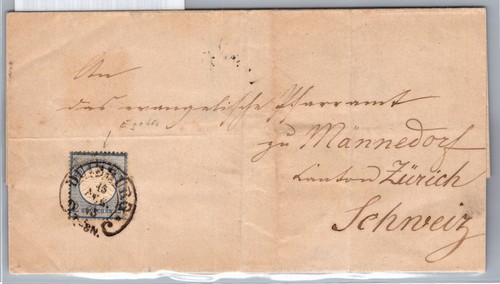 An
das evangelische Pfarramt
zu Männedorf
Canton Zürich
Schweiz
15